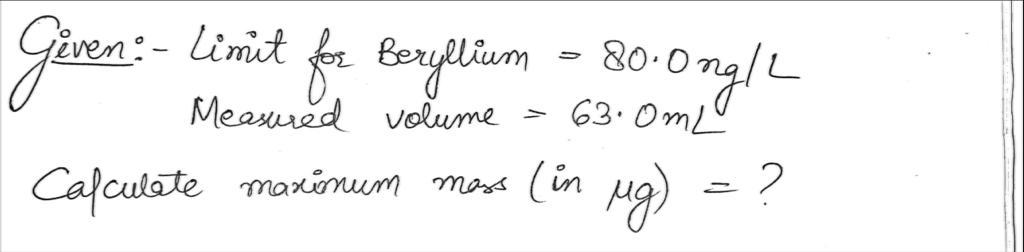 Given:- Limit for Beryllium = 80.0 ng/L
Measured volume = 63.0 mL
Calculate maximum mass (in μg) = ?